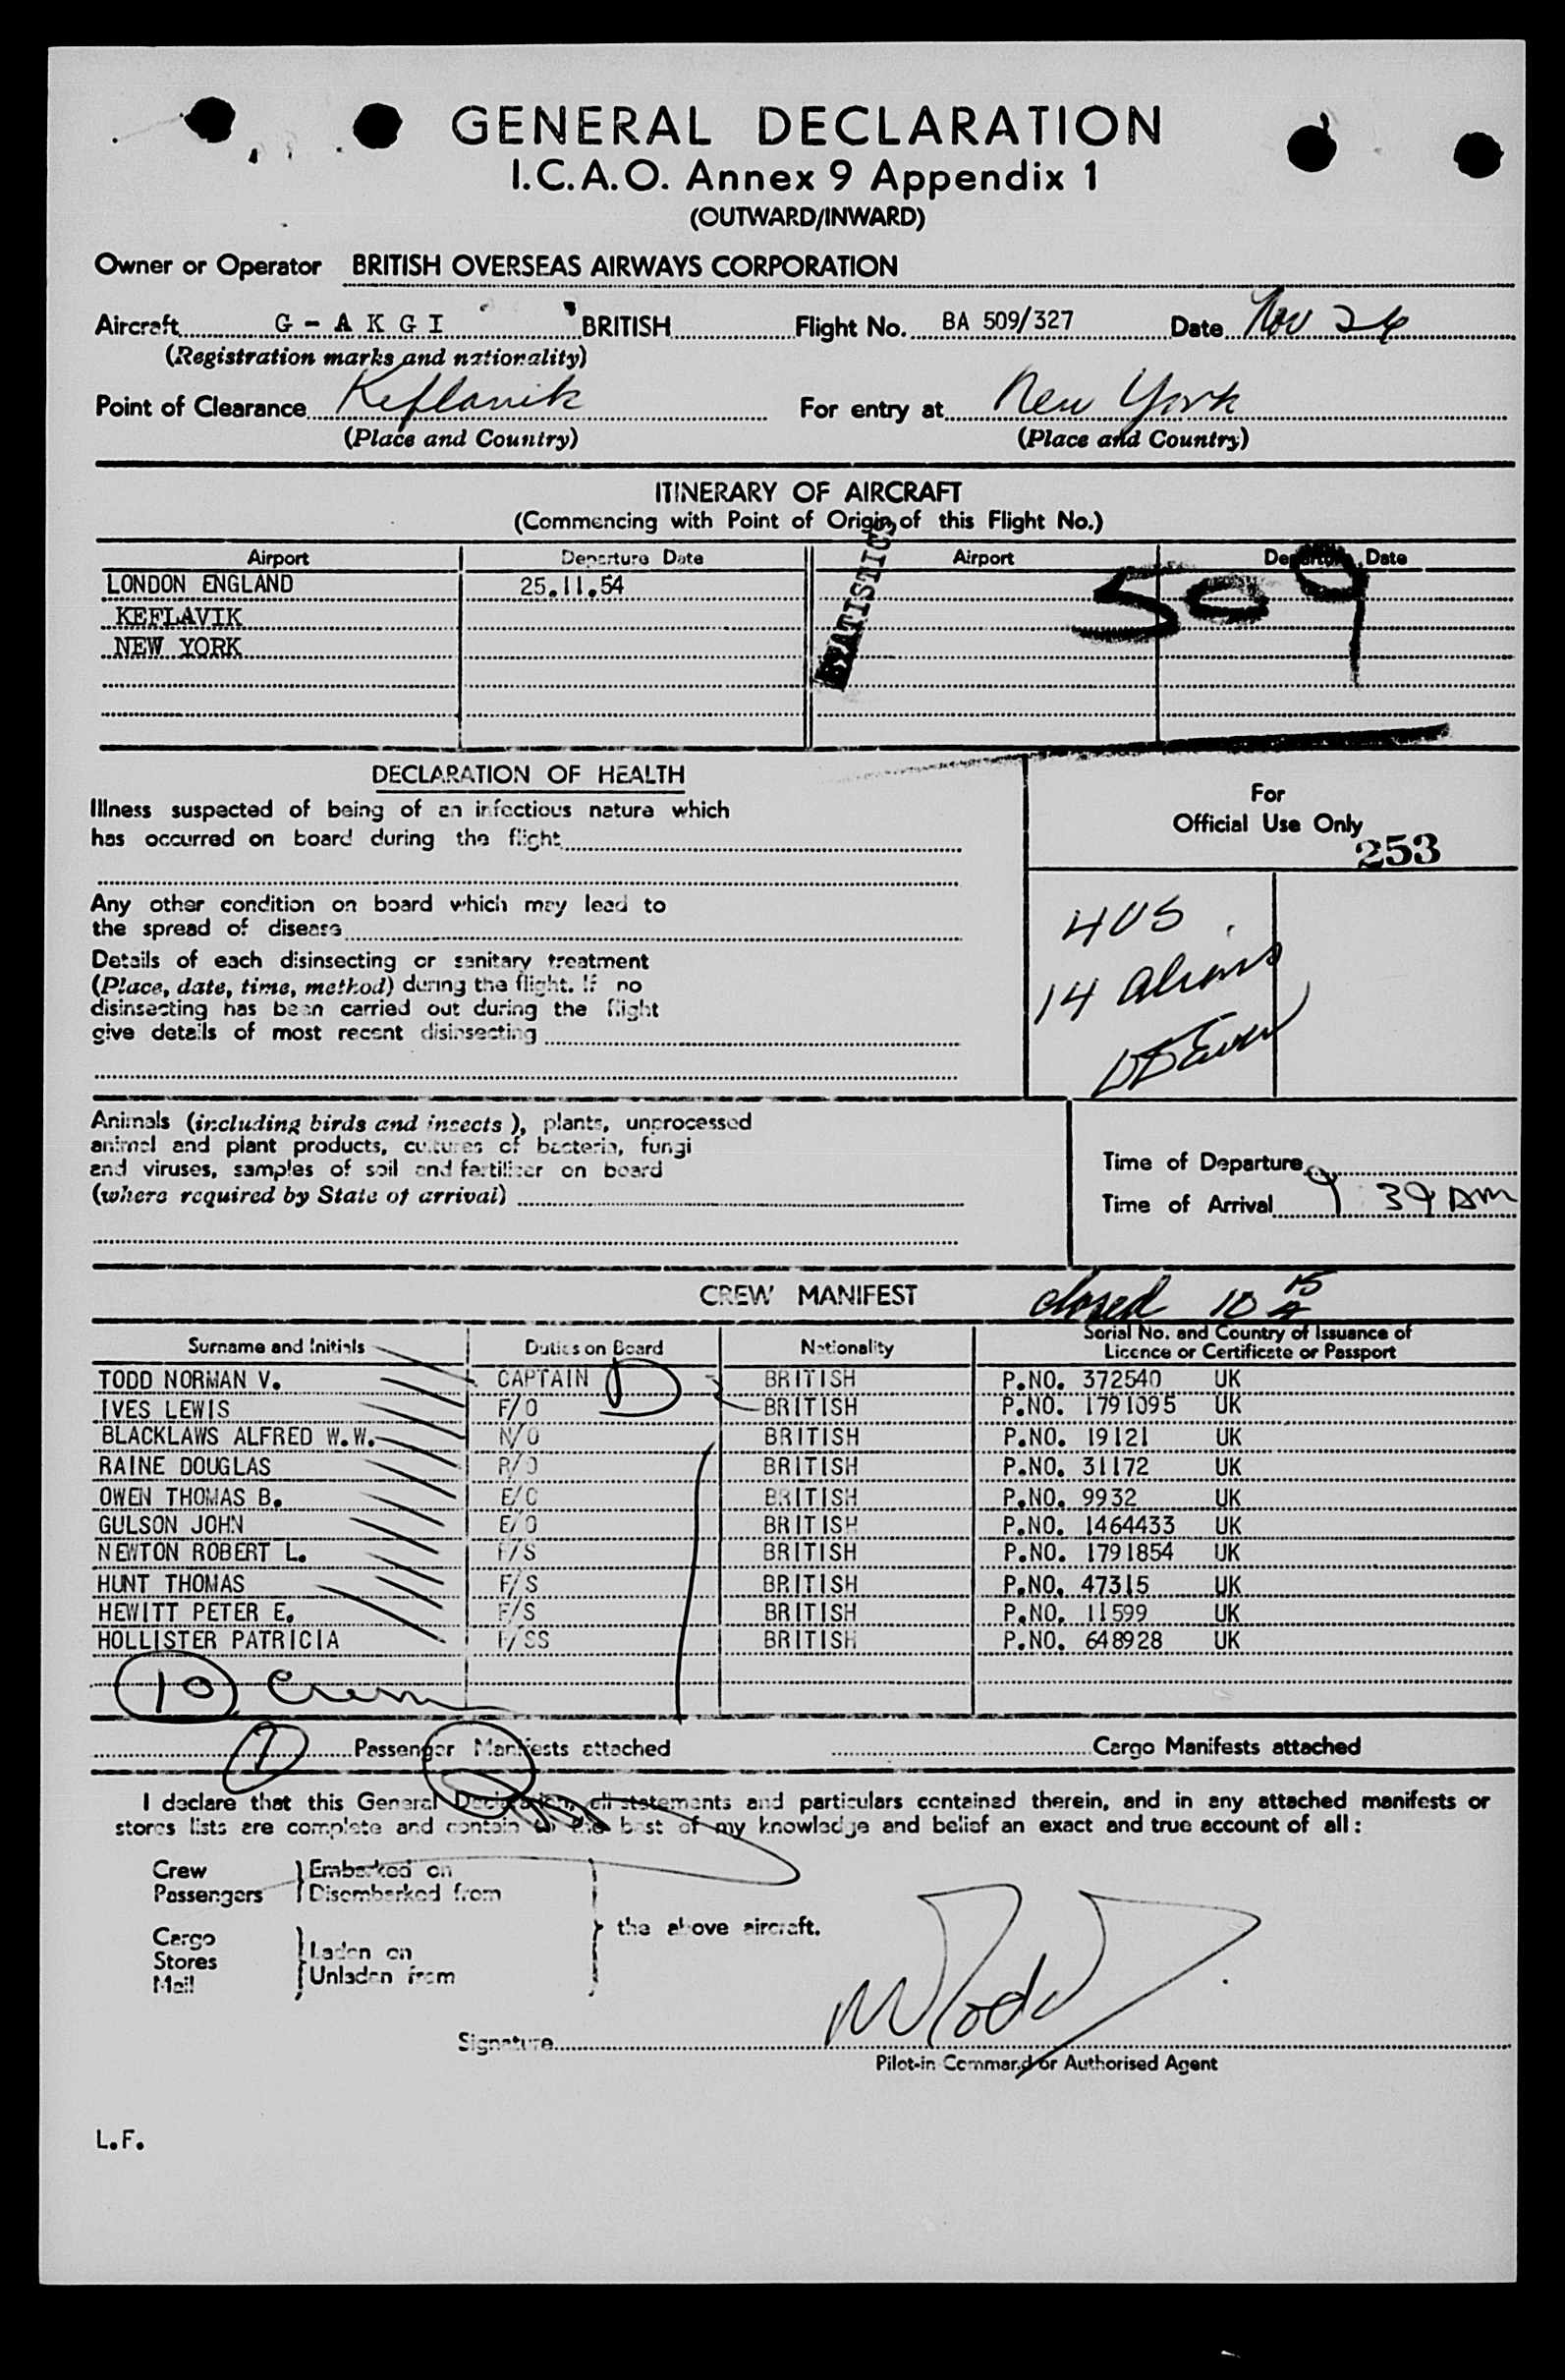 GENERAL DECLARATION
I.C.A.O. Annex 9 Appendix 1
(OUTWARD/INWARD)
Owner or Operator BRITISH OVERSEAS AIRWAYS CORPORATION
Aircraft G - A K G I BRITISH Flight No. BA 509/327 Date Nov 26
(Registration marks and nationality)
Point of Clearance Keflavik For entry at New York
(Place and Country) (Place and Country)
ITINERARY OF AIRCRAFT
(Commencing with Point of Origin of this Flight No.)
Airport Departure Date Airport Departure Date
LONDON ENGLAND 25.11.54
KEFLAVIK
NEW YORK
STATISTICS
509
DECLARATION OF HEALTH
Illness suspected of being of an infectious nature which
has occurred on board during the flight
Any other condition on board which may lead to
the spread of disease
Details of each disinsecting or sanitary treatment
(Place, date, time, method) during the flight. If no
disinsecting has been carried out during the flight
give details of most recent disinsecting
For
Official Use Only
253
4 US
14 Aliens
Animals (including birds and insects), plants, unprocessed
animal and plant products, cultures of bacteria, fungi
and viruses, samples of soil and fertilizer on board
(where required by State of arrival)
Time of Departure
Time of Arrival 9 39 AM
CREW MANIFEST closed 10 15 A
Surname and Initials Duties on Board Nationality Serial No. and Country of Issuance of
Licence or Certificate or Passport
TODD NORMAN V. CAPTAIN BRITISH P.NO. 372540 UK
IVES LEWIS F/O BRITISH P.NO. 1791095 UK
BLACKLAWS ALFRED W.W. N/O BRITISH P.NO. 19121 UK
RAINE DOUGLAS R/O BRITISH P.NO. 31172 UK
OWEN THOMAS B. E/O BRITISH P.NO. 9932 UK
GULSON JOHN E/O BRITISH P.NO. 1464433 UK
NEWTON ROBERT L. F/S BRITISH P.NO. 1791854 UK
HUNT THOMAS F/S BRITISH P.NO. 47315 UK
HEWITT PETER E. F/S BRITISH P.NO. 11599 UK
HOLLISTER PATRICIA F/SS BRITISH P.NO. 648928 UK
10 Crew
Passenger Manifests attached Cargo Manifests attached
I declare that this General Declaration, all statements and particulars contained therein, and in any attached manifests or
stores lists are complete and contain to the best of my knowledge and belief an exact and true account of all:
Crew Embarked on
Passengers Disembarked from
the above aircraft.
Cargo
Stores Laden on
Mail Unladen from
Signature NV Todd
Pilot-in Command or Authorised Agent
L.F.